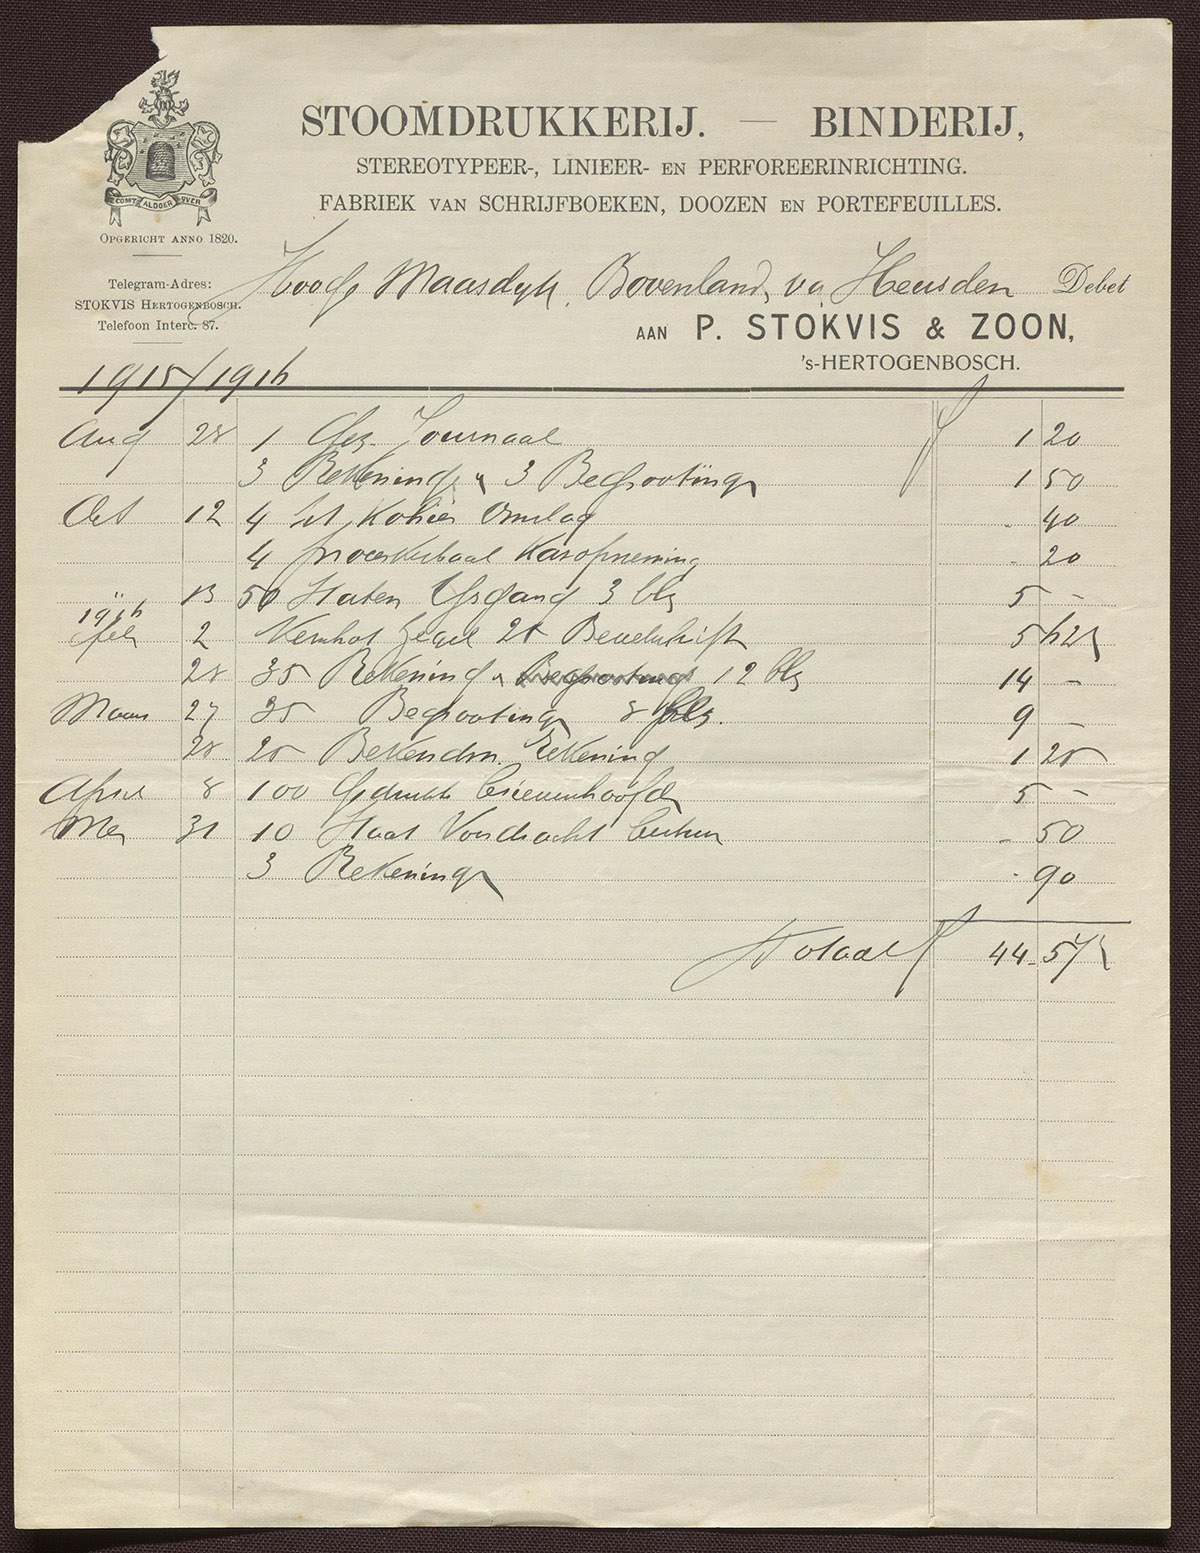 STOOMDRUKKERIJ. — BINDERIJ,
STEREOTYPEER-, LINIEER- EN PERFOREERINRICHTING.
FABRIEK VAN SCHRIJFBOEKEN, DOOZEN EN PORTEFEUILLES.
KOMT ALDOER YVER
OPGERICHT ANNO 1820.
Telegram-Adres:
STOKVIS HERTOGENBOSCH.
Telefoon Interc. 87.
Hooge Maasdijk, Bovenland, va Heusden Debet
AAN P. STOKVIS & ZOON,
's-HERTOGENBOSCH.
1915/1916
Aug 28 1 Journaal f 1 20
3 Rekening 3 Begrooting 1 50
Oct 12 4 Kohier Omslag - 40
4 Kasopneming - 20
" 13 50 Staten IJsgang 3 blz 5 -
1916
Feb 2 Zegel 25 5 62
28 35 Rekening 12 blz 14 -
Maart 27 35 Begrooting 8 blz. 9 -
28 25 Bekendm. Rekening 1 25
April 8 100 Gedrukte brievenhoofden 5 -
Mei 31 10 Staat Voordracht - 50
3 Rekening - 90
Totaal f 44.57